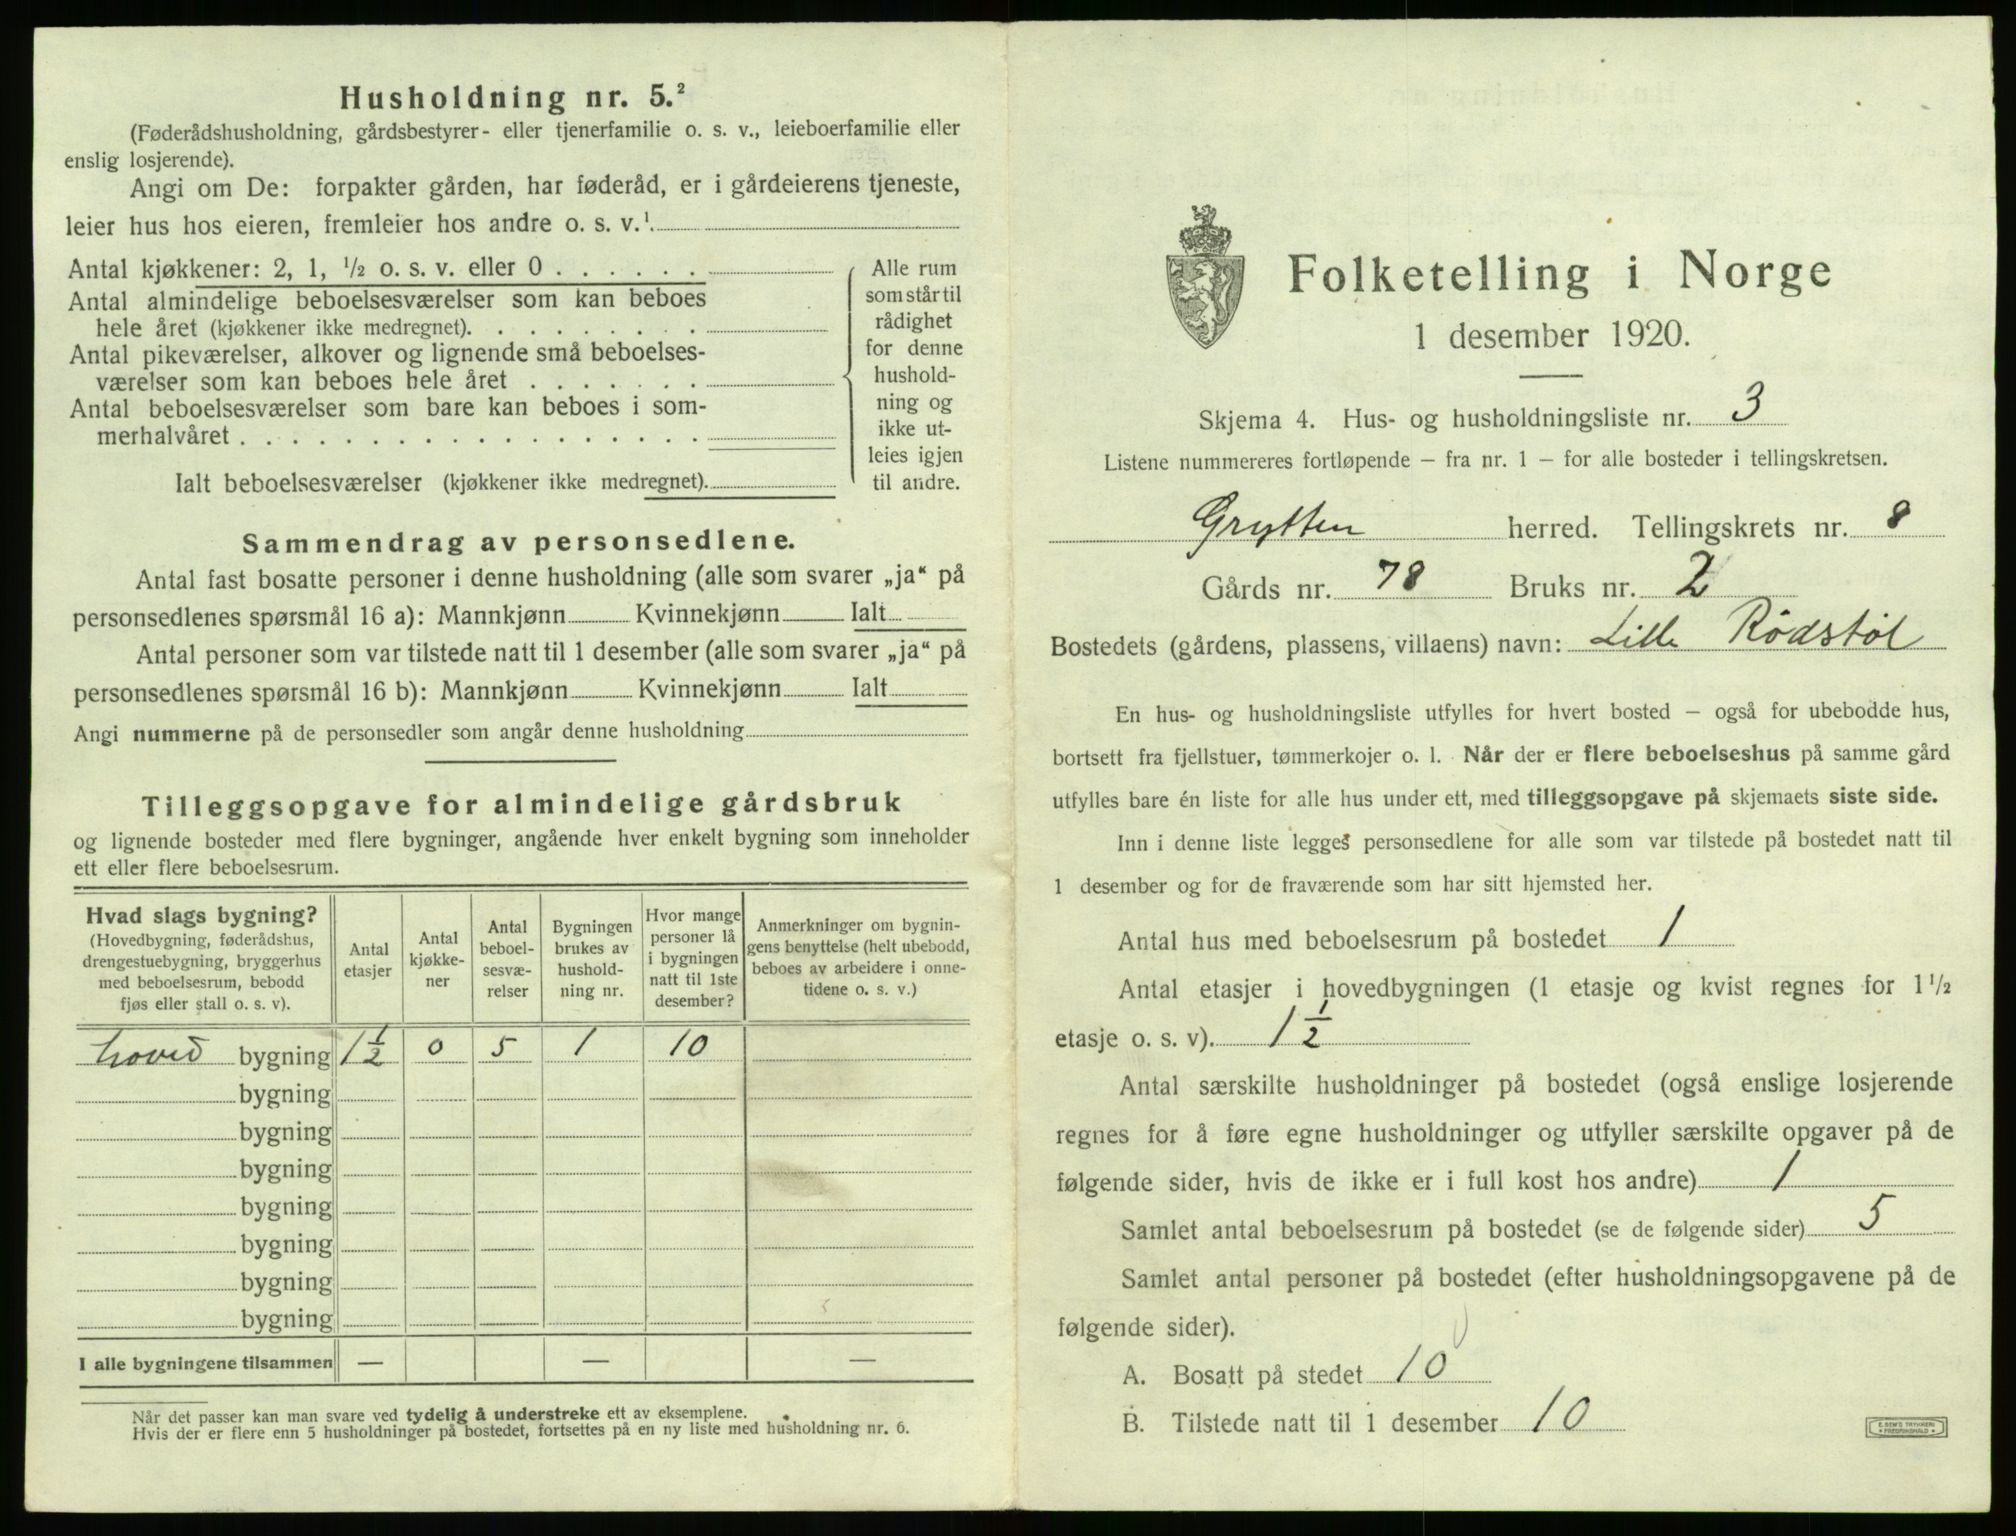 Husholdning nr. 5.²
(Føderådshusholdning, gårdsbestyrer- eller tjenerfamilie o. s. v., leieboerfamilie eller
enslig losjerende).
Angi om De: forpakter gården, har føderåd, er i gårdeierens tjeneste,
leier hus hos eieren, fremleier hos andre o. s. v.¹.
Antal kjøkkener: 2, 1, ½ o. s. v. eller 0 . . . . . .
Antal almindelige beboelsesværelser som kan beboes
hele året (kjøkkener ikke medregnet). . . . . . . . .
Antal pikeværelser, alkover og lignende små beboelses-
værelser som kan beboes hele året . . . . . . .
Antal beboelsesværelser som bare kan beboes i som-
merhalvåret . . . . . . . . . . . . . . . . . .
Ialt beboelsesværelser (kjøkkener ikke medregnet).
Alle rum
som står til
rådighet
for denne
hushold-
ning og
ikke ut-
leies igjen
til andre.
Sammendrag av personsedlene.
Antal fast bosatte personer i denne husholdning (alle som svarer „ja“ på
personsedlenes spørsmål 16 a): Mannkjønn Kvinnekjønn Ialt
Antal personer som var tilstede natt til 1 desember (alle som svarer „ja“ på
personsedlenes spørsmål 16 b): Mannkjønn Kvinnekjønn Ialt
Angi nummerne på de personsedler som angår denne husholdning
Tilleggsopgave for almindelige gårdsbruk
og lignende bosteder med flere bygninger, angående hver enkelt bygning som inneholder
ett eller flere beboelsesrum.
Hvad slags bygning?
(Hovedbygning, føderådshus,
drengestuebygning, bryggerhus
med beboelsesrum, bebodd
fjøs eller stall o. s. v).
Antal
etasjer
Antal
kjøkke-
ner
Antal
beboel-
sesvæ-
relser
Bygningen
brukes av
hushold-
ning nr.
Hvor mange
personer lå
i bygningen
natt til 1ste
desember?
Anmerkninger om bygnin-
gens benyttelse (helt ubebodd,
beboes av arbeidere i onne-
tidene o. s. v.)
hoved bygning 1½ 0 5 1 10
bygning
bygning
bygning
bygning
bygning
bygning
bygning
I alle bygningene tilsammen — — —
Når det passer kan man svare ved tydelig å understreke ett av eksemplene.
Hvis der er flere enn 5 husholdninger på bostedet, fortsettes på en ny liste med husholdning nr. 6.
Folketelling i Norge
1 desember 1920.
Skjema 4. Hus- og husholdningsliste nr. 3
Listene nummereres fortløpende — fra nr. 1 — for alle bosteder i tellingskretsen.
Grytten herred. Tellingskrets nr. 8
Gårds nr. 78 Bruks nr. 2
Bostedets (gårdens, plassens, villaens) navn: Lille Rödstöl
En hus- og husholdningsliste utfylles for hvert bosted — også for ubebodde hus,
bortsett fra fjellstuer, tømmerkojer o. l. Når der er flere beboelseshus på samme gård
utfylles bare én liste for alle hus under ett, med tilleggsopgave på skjemaets siste side.
Inn i denne liste legges personsedlene for alle som var tilstede på bostedet natt til
1 desember og for de fraværende som har sitt hjemsted her.
Antal hus med beboelsesrum på bostedet 1
Antal etasjer i hovedbygningen (1 etasje og kvist regnes for 1½
etasje o. s. v). 1½
Antal særskilte husholdninger på bostedet (også enslige losjerende
regnes for å føre egne husholdninger og utfyller særskilte opgaver på de
følgende sider, hvis de ikke er i full kost hos andre) 1
Samlet antal beboelsesrum på bostedet (se de følgende sider) 5
Samlet antal personer på bostedet (efter husholdningsopgavene på de
følgende sider).
A. Bosatt på stedet 10
B. Tilstede natt til 1 desember 10
E. SEM'S TRYKKERI
• FREDRIKSHALD •